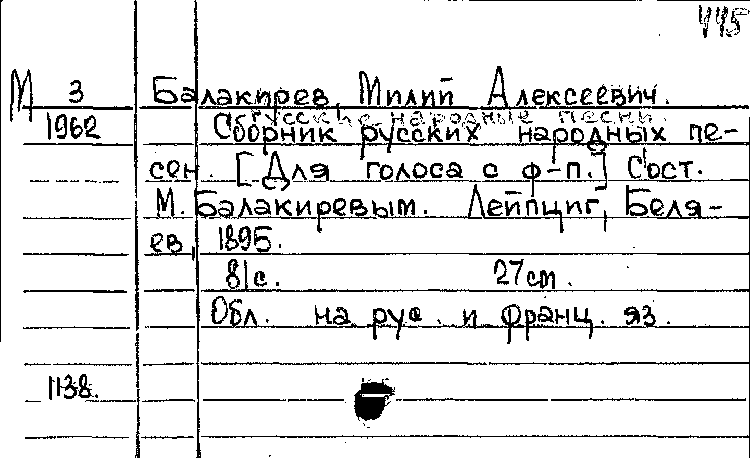 445
М 3 Балакирев, Милий Алексеевич.
Русские народные песни.
1962 Сборник русских народных пе-
сен. [Для голоса с ф-п.] Сост.
М. Балакиревым. Лейпциг, Беля-
ев, 1895.
81с. 27cm.
Обл. на рус. и франц. яз.
1138.